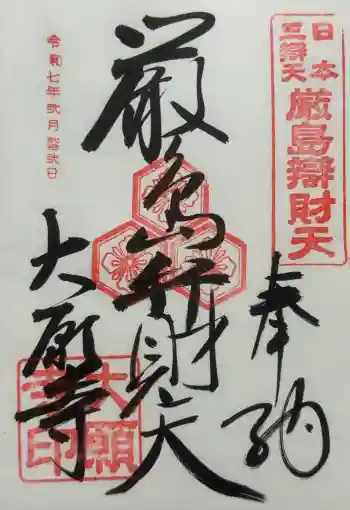 日本
三辨天
厳島辨財天
奉納
厳島弁財天
令和七年弐月弐日
大願寺
大願
寺印